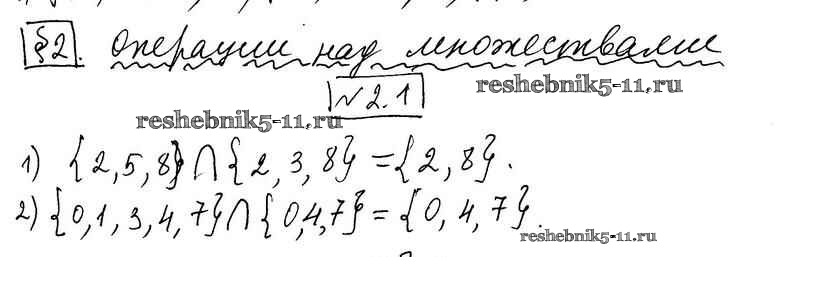 §2. Операции над множествами
№2.1
reshebnik5-11.ru
reshebnik5-11.ru
1) {2,5,8}∩{2,3,8}={2,8}.
2) {0,1,3,4,7}∩{0,4,7}={0,4,7}.
reshebnik5-11.ru